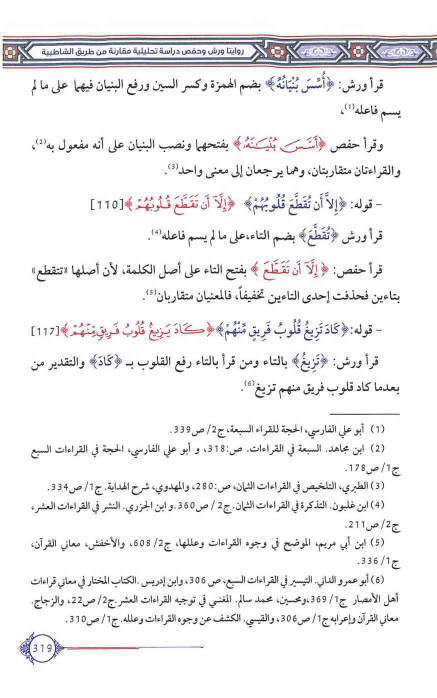 روايتا ورش وحفص دراسة تحليلية مقارنة من طريق الشاطبية
قرأ ورش: ﴿أُسِّسَ بُنْيَانُهُ﴾ بضم الهمزة وكسر السين ورفع البنيان فيهما على ما لم
يسم فاعله(1)،
وقرأ حفص ﴿أَسَّسَ بُنْيَـٰنَهُۥ﴾ بفتحهما ونصب البنيان على أنه مفعول به(2)،
والقراءتان متقاربتان، وهما يرجعان إلى معنى واحد(3).
- قوله: ﴿إِلَّا أَن تُقَطَّعَ قُلُوبُهُمْ﴾ ﴿إِلَّآ أَن تَقَطَّعَ قُلُوبُهُمْ﴾[110]
قرأ ورش ﴿تُقَطَّعَ﴾ بضم التاء،على ما لم يسم فاعله(4).
قرأ حفص: ﴿إِلَّآ أَن تَقَطَّعَ﴾ بفتح التاء على أصل الكلمة، لأن أصلها «تتقطع»
بتاءين فحذفت إحدى التاءين تخفيفاً، فالمعنيان متقاربان(5).
- قوله:﴿كَادَ تَزِيغُ قُلُوبُ فَرِيقٍ مِّنْهُمْ﴾﴿كَادَ يَزِيغُ قُلُوبُ فَرِيقٍ مِّنْهُمْ﴾[117]
قرأ ورش: ﴿تَزِيغُ﴾ بالتاء ومن قرأ بالتاء رفع القلوب بـ ﴿كَادَ﴾ والتقدير من
بعدما كاد قلوب فريق منهم تزيغ(6).
(1) أبو علي الفارسي، الحجة للقراء السبعة، ج2/ ص339.
(2) ابن مجاهد. السبعة في القراءات. ص:318، و أبو علي الفارسي، الحجة في القراءات السبع
ج1/ ص178.
(3) الطبري، التلخيص في القراءات الثمان، ص:280، والمهدوي، شرح الهداية. ج1/ ص334.
(4) ابن غلبون. التذكرة في القراءات الثمان. ج2/ ص360. و ابن الجزري. النشر في القراءات العشر،
ج2/ ص211.
(5) ابن أبي مريم، الموضح في وجوه القراءات وعللها، ج2/ 608، والأخفش، معاني القرآن،
ج1/ 336.
(6) أبو عمرو الداني. التيسير في القراءات السبع، ص306، وابن إدريس .الكتاب المختار في معاني قراءات
أهل الأمصار ج1/ 369،ومحسين، محمد سالم. المغني في توجيه القراءات العشر.ج2/ ص22، والزجاج.
معاني القرآن وإعرابه ج1/ ص306، والقيسي. الكشف عن وجوه القراءات وعلله. ج1/ ص310.
319